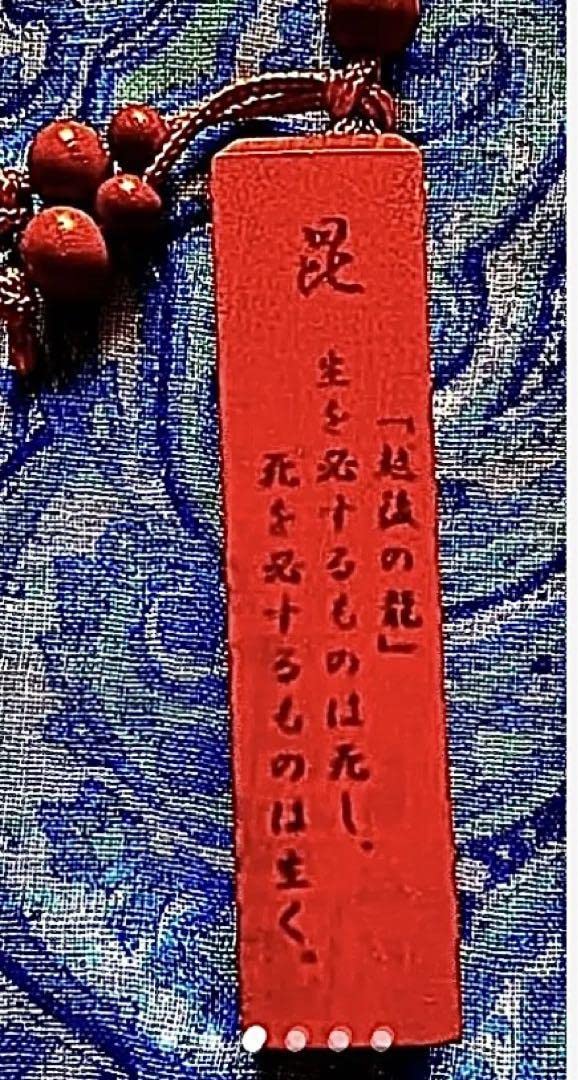 毘
「越後の龍」
生を必するものは死し、
死を必するものは生く。